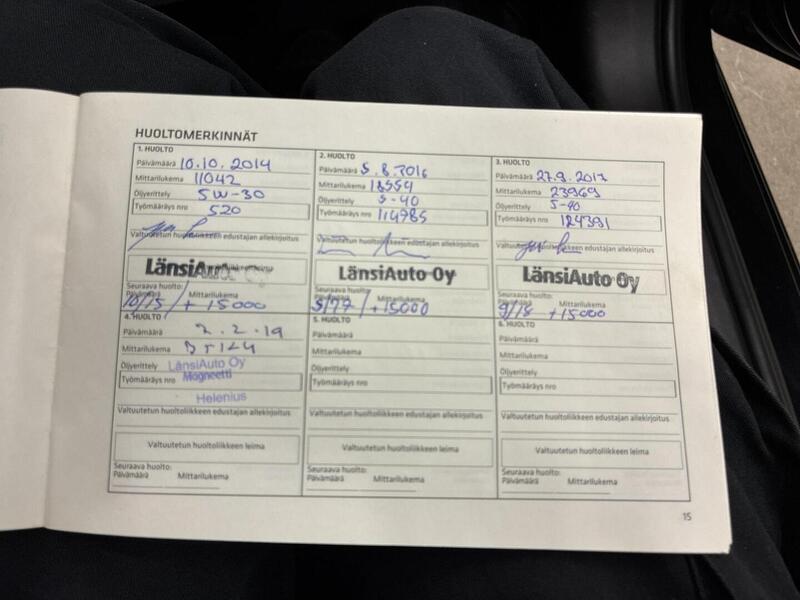 HUOLTOMERKINNÄT
1. HUOLTO
Päivämäärä 10.10.2014
Mittarilukema 11042
Öljyerittely 5W-30
Työmääräys nro 520
Valtuutetun huoltoliikkeen edustajan allekirjoitus
LänsiAuto
Seuraava huolto:
Päivämäärä Mittarilukema
10/15 / + 15000
2. HUOLTO
Päivämäärä 5.8.2016
Mittarilukema 18554
Öljyerittely 5-40
Työmääräys nro 114785
Valtuutetun huoltoliikkeen edustajan allekirjoitus
LänsiAuto Oy
Seuraava huolto:
Päivämäärä Mittarilukema
5/17 / +15000
3. HUOLTO
Päivämäärä 27.9.2017
Mittarilukema 23969
Öljyerittely 5-40
Työmääräys nro 124391
Valtuutetun huoltoliikkeen edustajan allekirjoitus
LänsiAuto Oy
Seuraava huolto:
Päivämäärä Mittarilukema
9/18 +15000
4. HUOLTO
Päivämäärä 2.2.19
Mittarilukema
Öljyerittely LänsiAuto Oy
Työmääräys nro Magneetti
Helenius
Valtuutetun huoltoliikkeen edustajan allekirjoitus
Valtuutetun huoltoliikkeen leima
Seuraava huolto:
Päivämäärä Mittarilukema
5. HUOLTO
Päivämäärä
Mittarilukema
Öljyerittely
Työmääräys nro
Valtuutetun huoltoliikkeen edustajan allekirjoitus
Valtuutetun huoltoliikkeen leima
Seuraava huolto:
Päivämäärä Mittarilukema
6. HUOLTO
Päivämäärä
Mittarilukema
Öljyerittely
Työmääräys nro
Valtuutetun huoltoliikkeen edustajan allekirjoitus
Valtuutetun huoltoliikkeen leima
Seuraava huolto:
Päivämäärä Mittarilukema
15